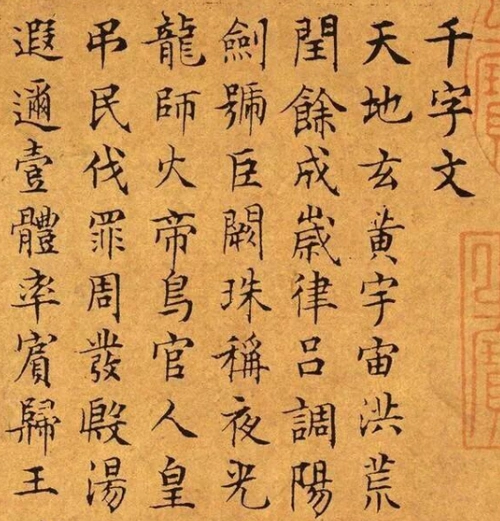 千字文
天地玄黃宇宙洪荒
閏餘成歲律呂調陽
劍號巨闕珠稱夜光
龍師火帝鳥官人皇
弔民伐罪周發殷湯
遐邇壹體率賓歸王